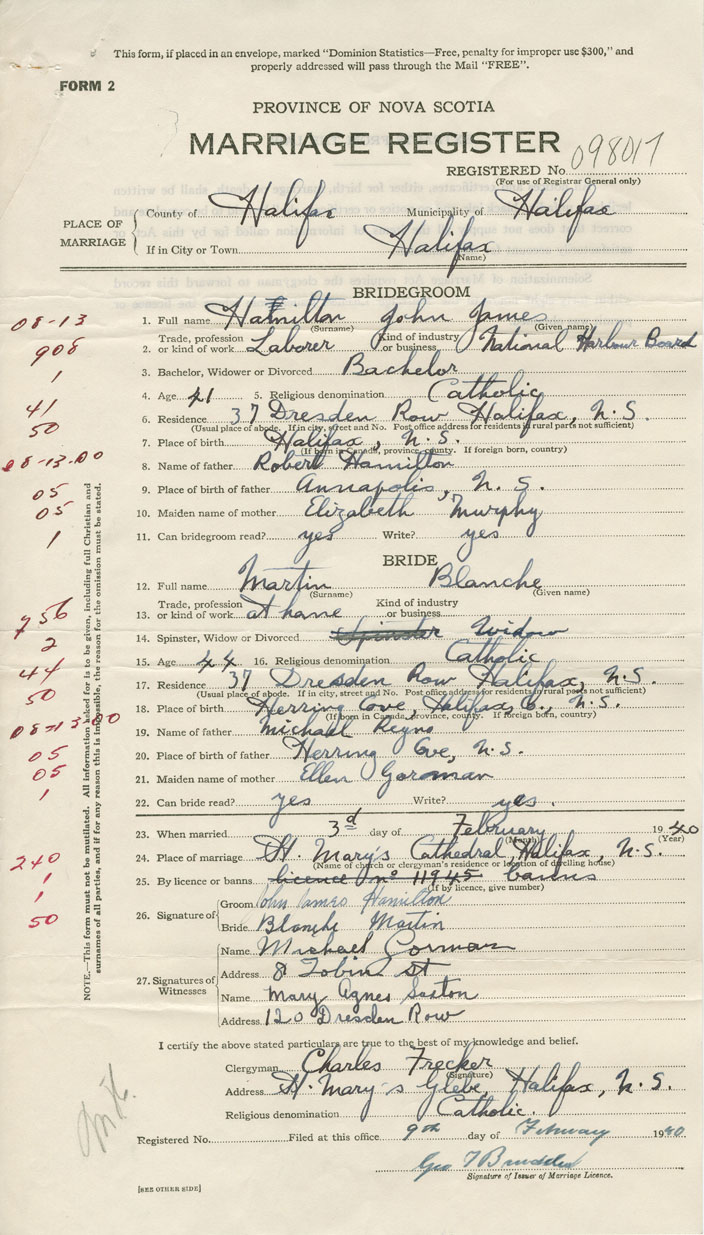 This form, if placed in an envelope, marked "Dominion Statistics—Free, penalty for improper use $300," and
properly addressed will pass through the Mail "FREE".
FORM 2
PROVINCE OF NOVA SCOTIA
MARRIAGE REGISTER
REGISTERED No. 098017
(For use of Registrar General only)
PLACE OF MARRIAGE
County of Halifax Municipality of Halifax
If in City or Town Halifax
(Name)
BRIDEGROOM
08-13
1. Full name Hamilton John James
(Surname) (Given name)
908
2. Trade, profession or kind of work Laborer Kind of industry or business National Harbour Board
1
3. Bachelor, Widower or Divorced Bachelor
41
4. Age 41 5. Religious denomination Catholic
50
6. Residence 37 Dresden Row Halifax, N.S.
(Usual place of abode. If in city, street and No. Post office address for residents in rural parts not sufficient)
7. Place of birth Halifax, N.S.
(If born in Canada, province, county. If foreign born, country)
08-13.00
8. Name of father Robert Hamilton
05
9. Place of birth of father Annapolis, N.S.
05
10. Maiden name of mother Elizabeth Murphy
1
11. Can bridegroom read? yes Write? yes
BRIDE
12. Full name Martin Blanche
(Surname) (Given name)
756
13. Trade, profession or kind of work at home Kind of industry or business
2
14. Spinster, Widow or Divorced Spinster Widow
44
15. Age 44 16. Religious denomination Catholic
50
17. Residence 37 Dresden Row Halifax, N.S.
(Usual place of abode. If in city, street and No. Post office address for residents in rural parts not sufficient)
18. Place of birth Herring Cove, Halifax Co., N.S.
(If born in Canada, province, county. If foreign born, country)
08-13.00
19. Name of father Michael Reyno
05
20. Place of birth of father Herring Cove, N.S.
05
21. Maiden name of mother Ellen Gorman
1
22. Can bride read? yes Write? yes.
23. When married 3d day of February 1940
(Month) (Year)
240
24. Place of marriage St. Mary's Cathedral Halifax, N.S.
(Name of church or clergyman's residence or location of dwelling house)
1
25. By licence or banns licence no 11945 banns
(If by licence, give number)
1
50
26. Signature of
Groom John James Hamilton
Bride Blanche Martin
27. Signatures of Witnesses
Name Michael Gorman
Address 8 Tobin St
Name Mary Agnes Sexton
Address 120 Dresden Row
I certify the above stated particulars are true to the best of my knowledge and belief.
Clergyman Charles Frecker
(Signature)
Address St. Mary's Glebe, Halifax, N.S.
Religious denomination Catholic.
Registered No. Filed at this office 9th day of February 1940
Geo
Signature of Issuer of Marriage Licence.
[SEE OTHER SIDE]
NOTE.—This form must not be mutilated. All information asked for is to be given, including full Christian and
surnames of all parties, and if for any reason this is impossible, the reason for the omission must be stated.